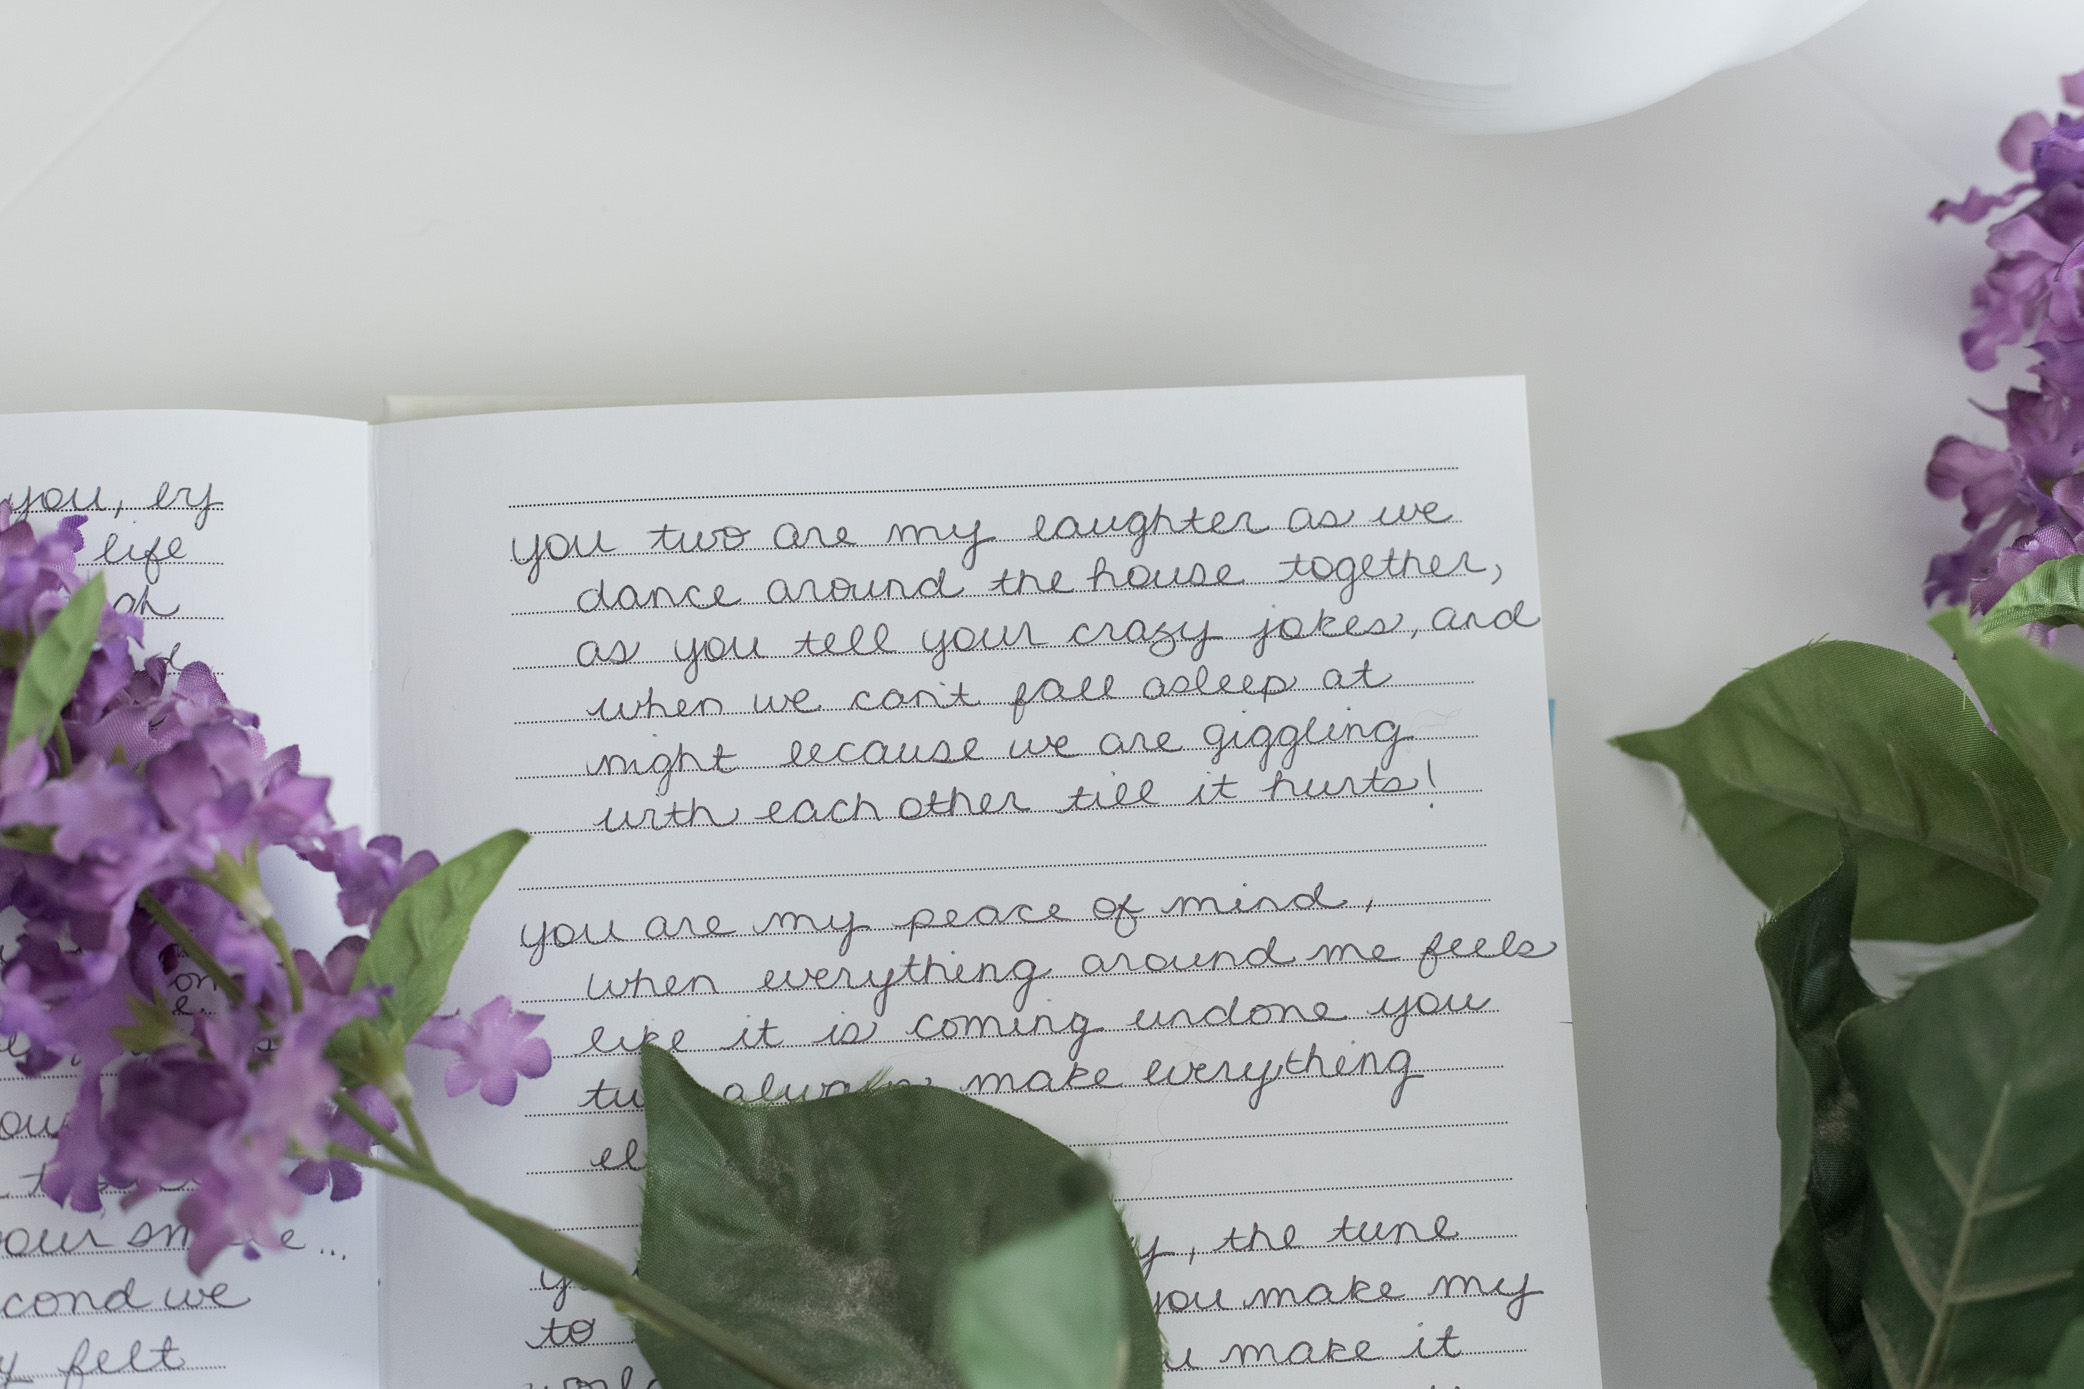 you, ey
life
on
your sm e...
cond we
felt
you two are my laughter as we
dance around the house together,
as you tell your crazy jokes, and
when we can't fall asleep at
night because we are giggling
with each other till it hurts!
you are my peace of mind,
when everything around me feels
like it is coming undone you
always make everything
the tune
to you make my
make it